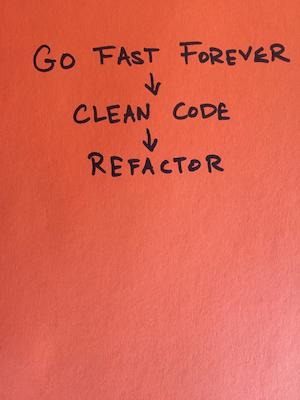 GO FAST FOREVER
↓
CLEAN CODE
↓
REFACTOR